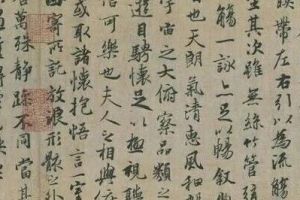 帶左右引以為流
坐其次雖無絲竹管弦
觴一詠亦足以暢敘
也天朗氣清惠風和
宇宙之大俯察品類之
遊目騁懷足以極視聽
信可樂也夫人之相與
或取諸懷抱悟言一室
因寄所託放浪形骸之外
萬殊靜躁不同當其